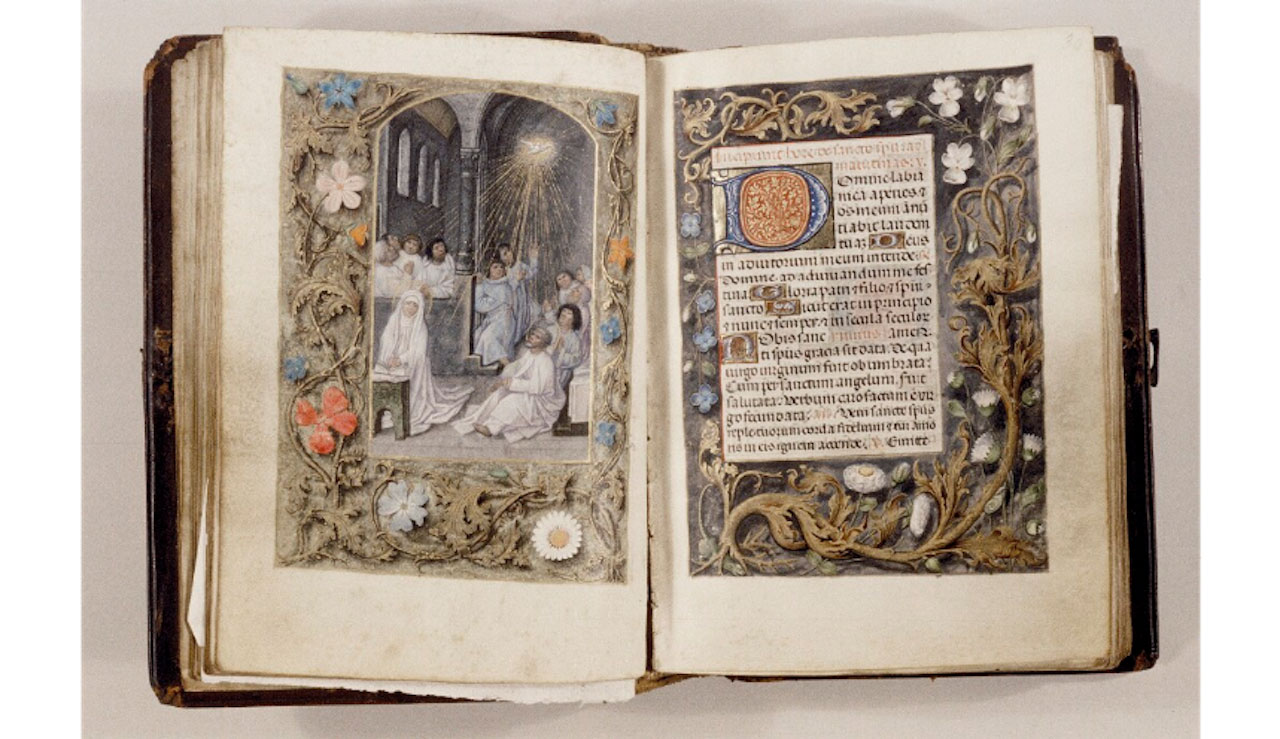 Incipiunt hore de sancto spiritu
matutinas. V.
Domine labia
mea aperies. &
os meum anun
tiabit laudem
tuaz. Deus
in adiutorium meum intende
Domine. ad adiuvandum me fes
tina Gloria patri & filio & spiri
sancto Sicut erat in principio
& nunc & semper. & in secula seculor
amen.
Nobis sanc
ti spus gracia sit data. De qua
virgo virginum fuit obumbrata.
Cum per sanctum angelum. fuit
salutata. Verbum caro factum e vir
go fecundata. Veni sancte spus
reple tuorum corda fidelium & tui amo
ris in eis ignem accende. V. Emitt